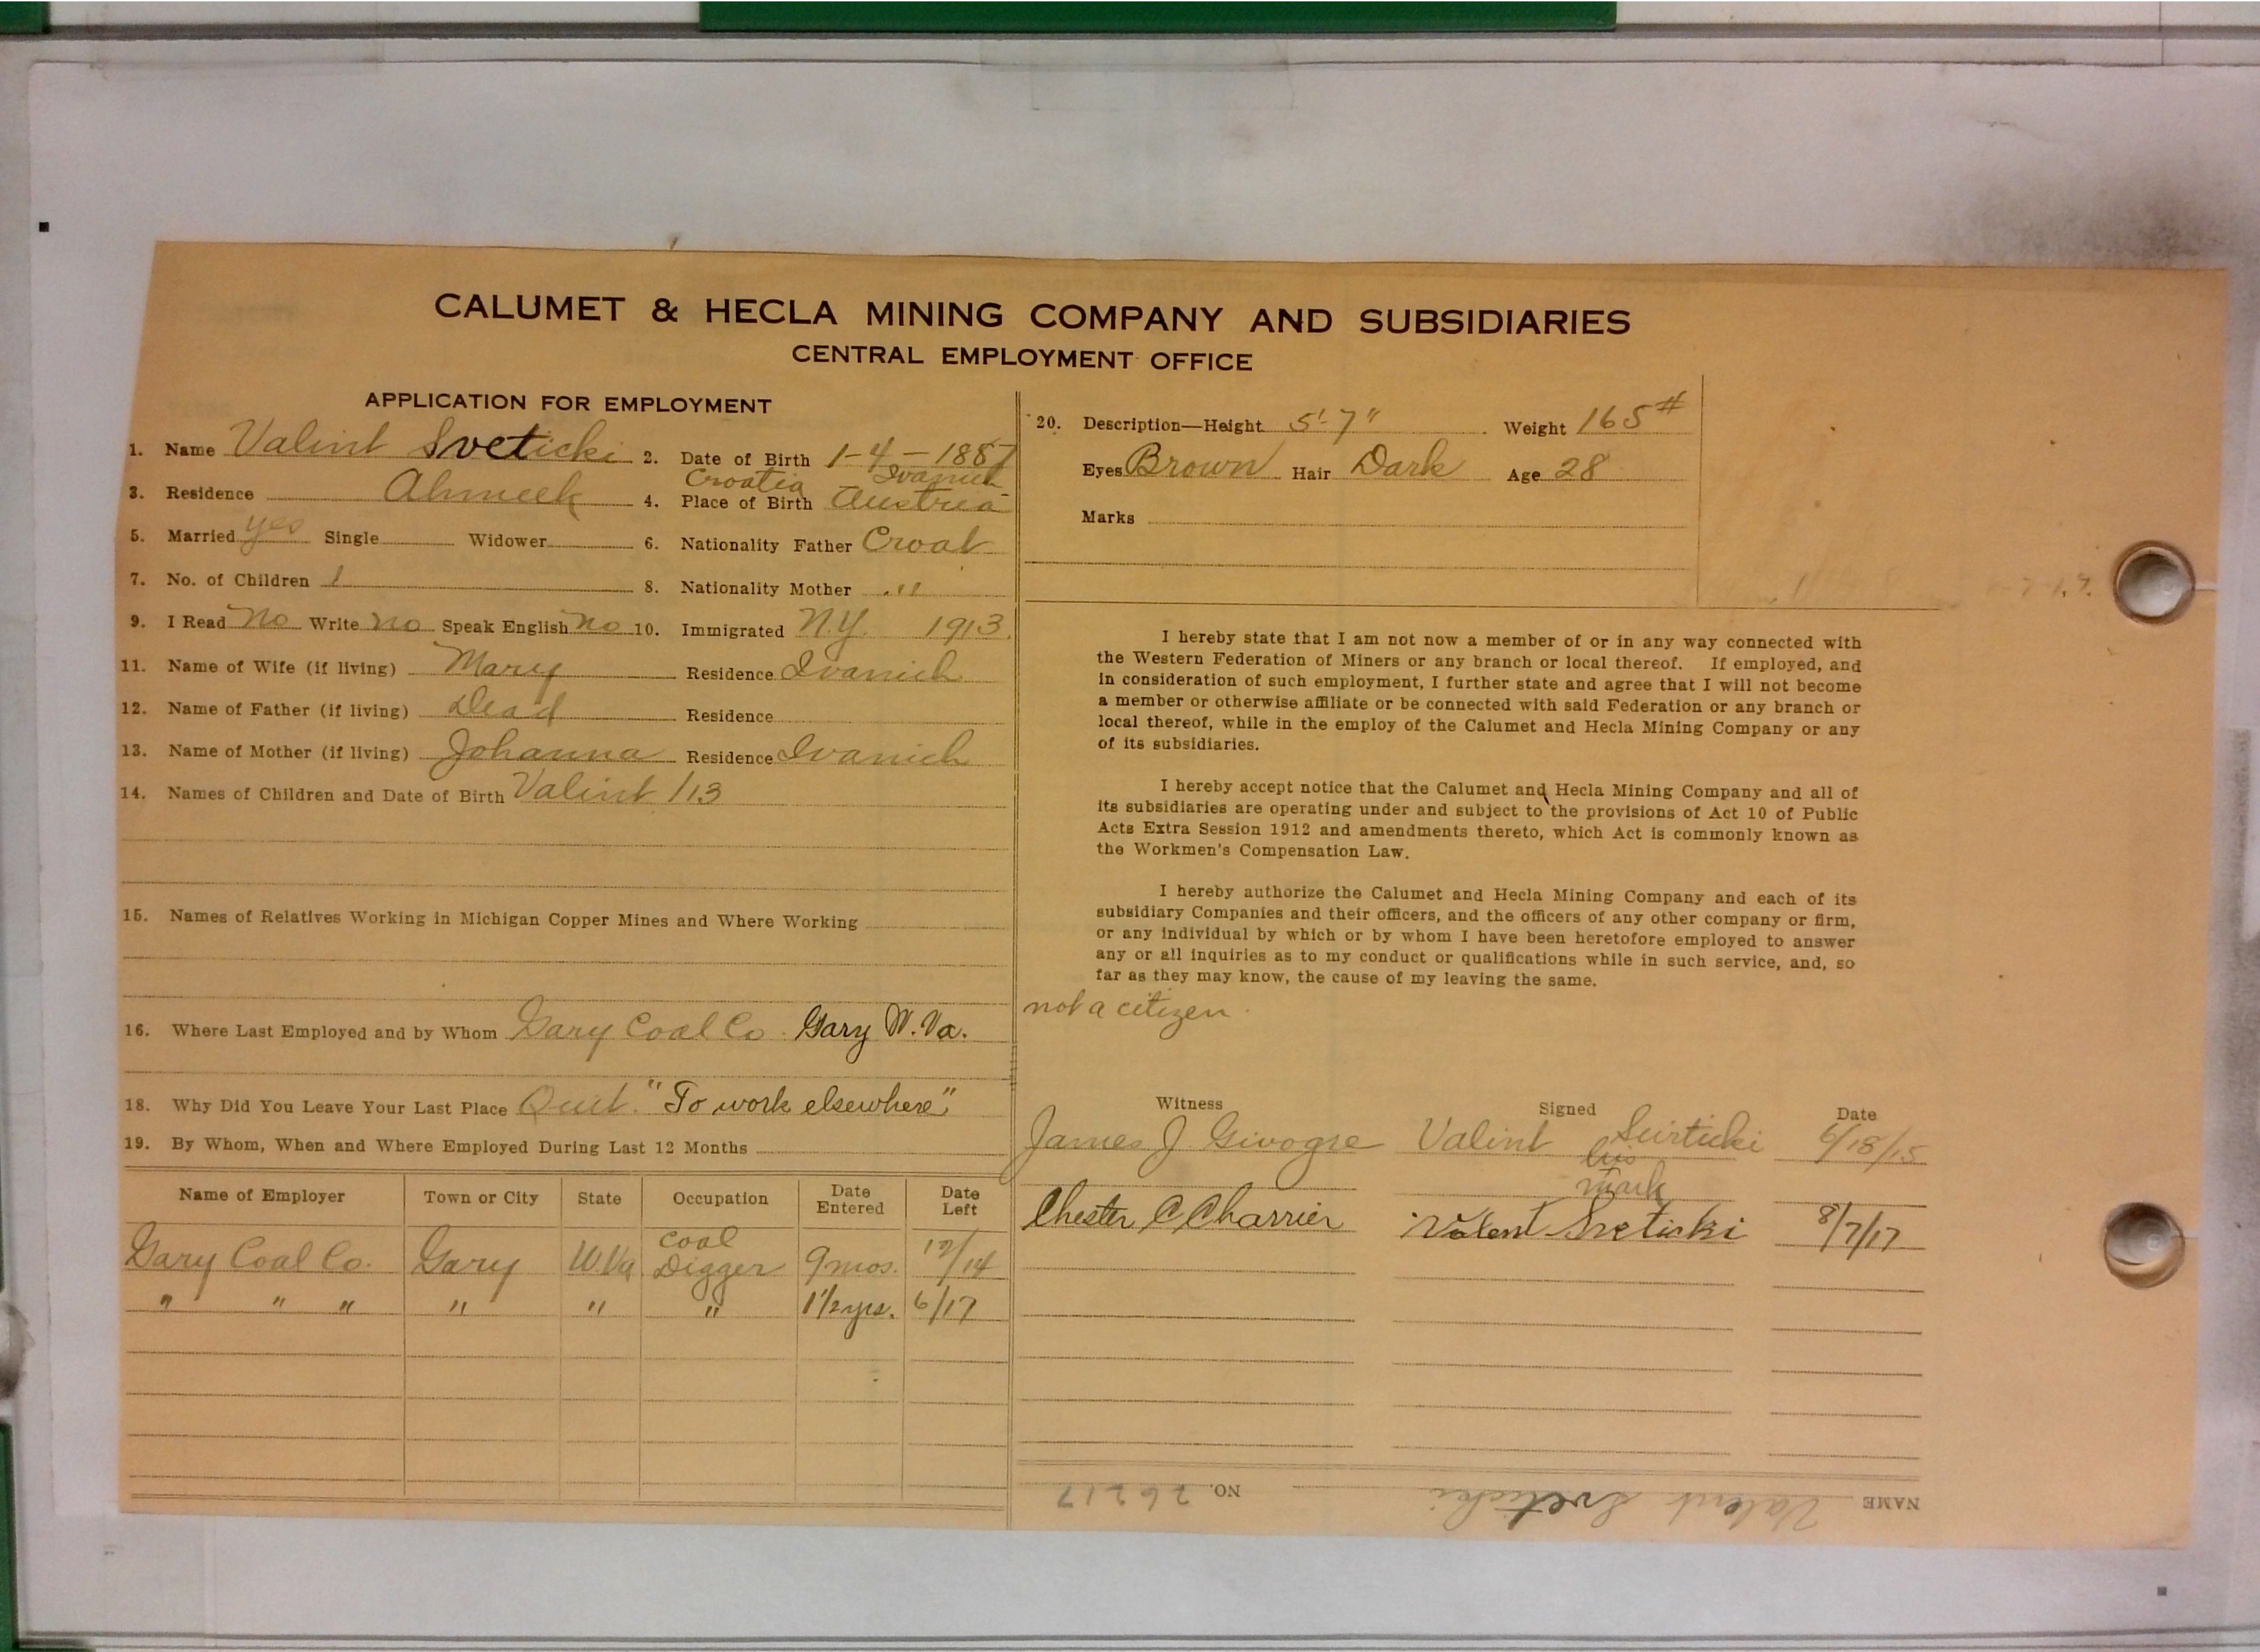 CALUMET & HECLA MINING COMPANY AND SUBSIDIARIES
CENTRAL EMPLOYMENT OFFICE
APPLICATION FOR EMPLOYMENT
1. Name Valint Sveticki 2. Date of Birth 1-4-1887
Croatia Ivanich
3. Residence Ahmeek 4. Place of Birth Austria
5. Married yes Single Widower 6. Nationality Father Croat
7. No. of Children 1 8. Nationality Mother "
9. I Read No Write no Speak English no 10. Immigrated N.Y. 1913.
11. Name of Wife (if living) Mary Residence Ivanich
12. Name of Father (if living) Dead Residence
13. Name of Mother (if living) Johanna Residence Ivanich
14. Names of Children and Date of Birth Valint 1/13
15. Names of Relatives Working in Michigan Copper Mines and Where Working
16. Where Last Employed and by Whom Gary Coal Co. Gary W. Va.
18. Why Did You Leave Your Last Place Quit. "To work elsewhere"
19. By Whom, When and Where Employed During Last 12 Months
Name of Employer Town or City State Occupation Date Entered Date Left
Gary Coal Co. Gary W.Va. Coal Digger 9 mos. 12/14
" " " " " " 1 1/2 yrs. 6/17
20. Description—Height 5'-7" Weight 165#
Eyes Brown Hair Dark Age 28
Marks
I hereby state that I am not now a member of or in any way connected with
the Western Federation of Miners or any branch or local thereof. If employed, and
in consideration of such employment, I further state and agree that I will not become
a member or otherwise affiliate or be connected with said Federation or any branch or
local thereof, while in the employ of the Calumet and Hecla Mining Company or any
of its subsidiaries.
I hereby accept notice that the Calumet and Hecla Mining Company and all of
its subsidiaries are operating under and subject to the provisions of Act 10 of Public
Acts Extra Session 1912 and amendments thereto, which Act is commonly known as
the Workmen's Compensation Law.
I hereby authorize the Calumet and Hecla Mining Company and each of its
subsidiary Companies and their officers, and the officers of any other company or firm,
or any individual by which or by whom I have been heretofore employed to answer
any or all inquiries as to my conduct or qualifications while in such service, and, so
far as they may know, the cause of my leaving the same.
not a citizen.
Witness Signed Date
James J. Valint 6/18/15
his
mark
Chester C Charrier Valent Sveticki 8/7/17
NAME Valent Sveticki NO. 26217